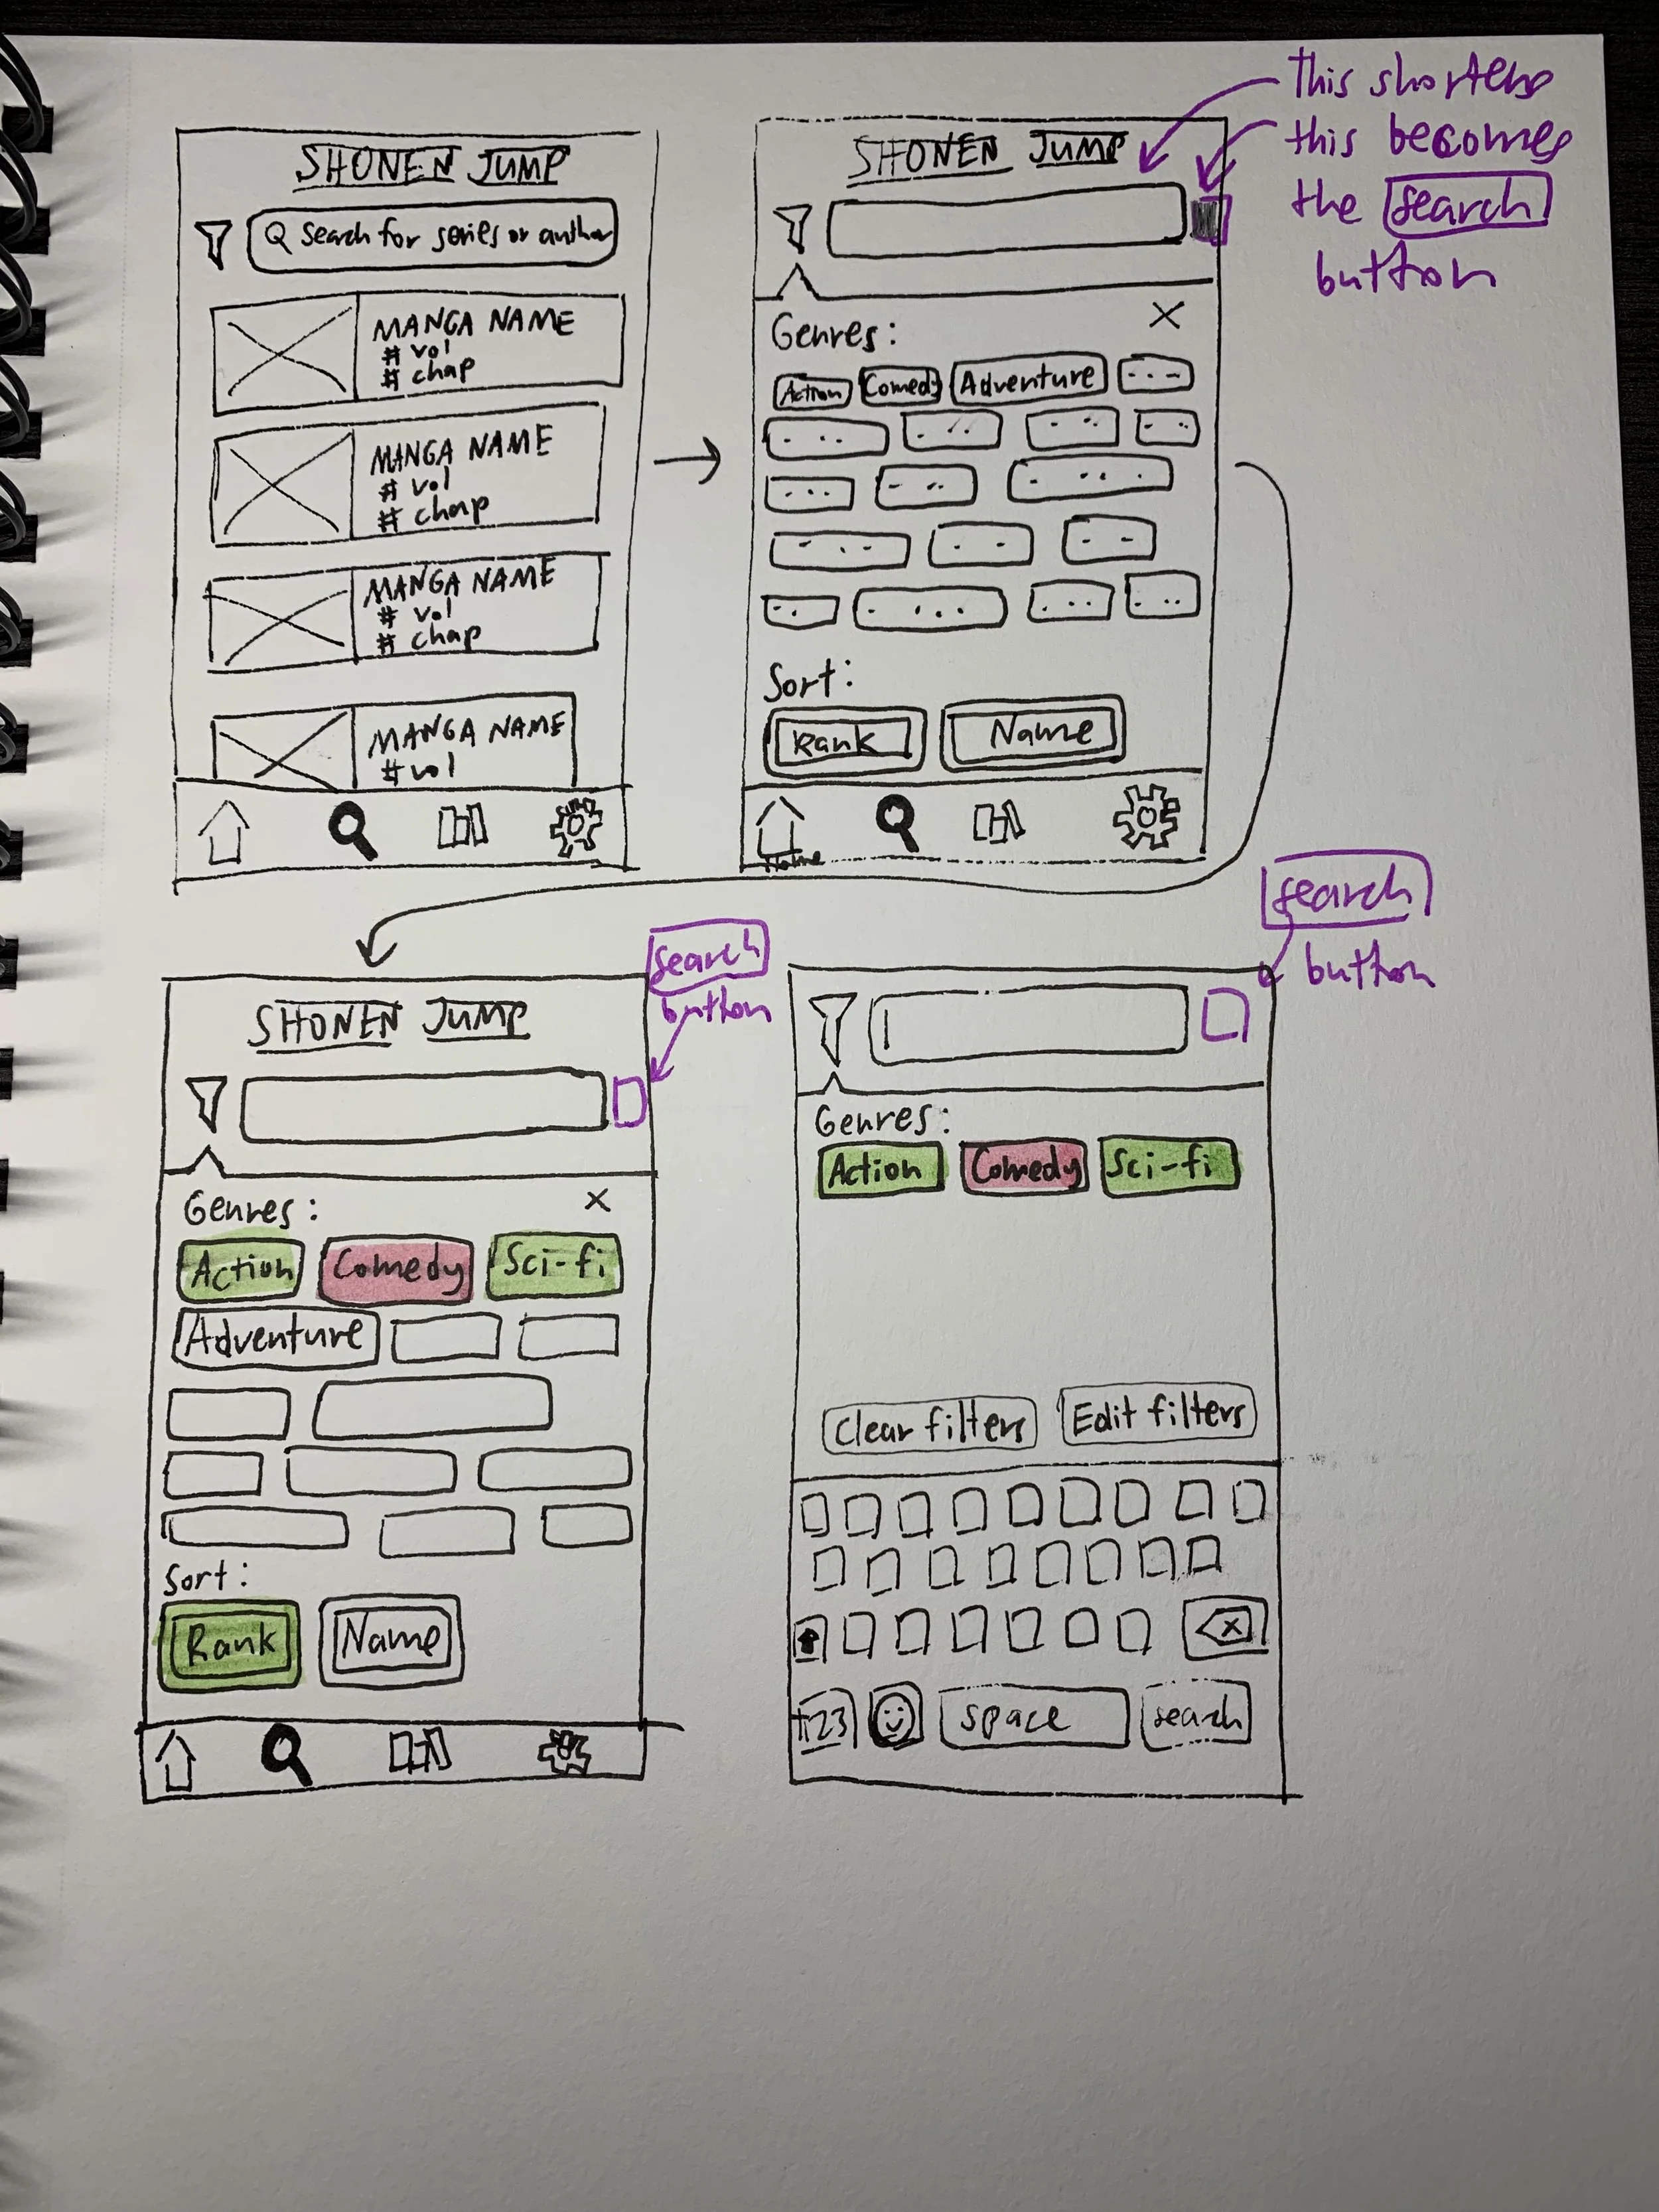 SHONEN JUMP
Search for series or author
MANGA NAME
# vol
# chap
MANGA NAME
# vol
# chap
MANGA NAME
# vol
# chap
MANGA NAME
# vol
SHONEN JUMP
this shortens
this becomes
the search
button
Genres:
X
Action Comedy Adventure
Sort:
Rank Name
Home
SHONEN JUMP
search
button
Genres:
X
Action Comedy Sci-fi
Adventure
Sort:
Rank Name
search
button
Genres:
Action Comedy Sci-fi
Clear filters Edit filters
X
123 space search